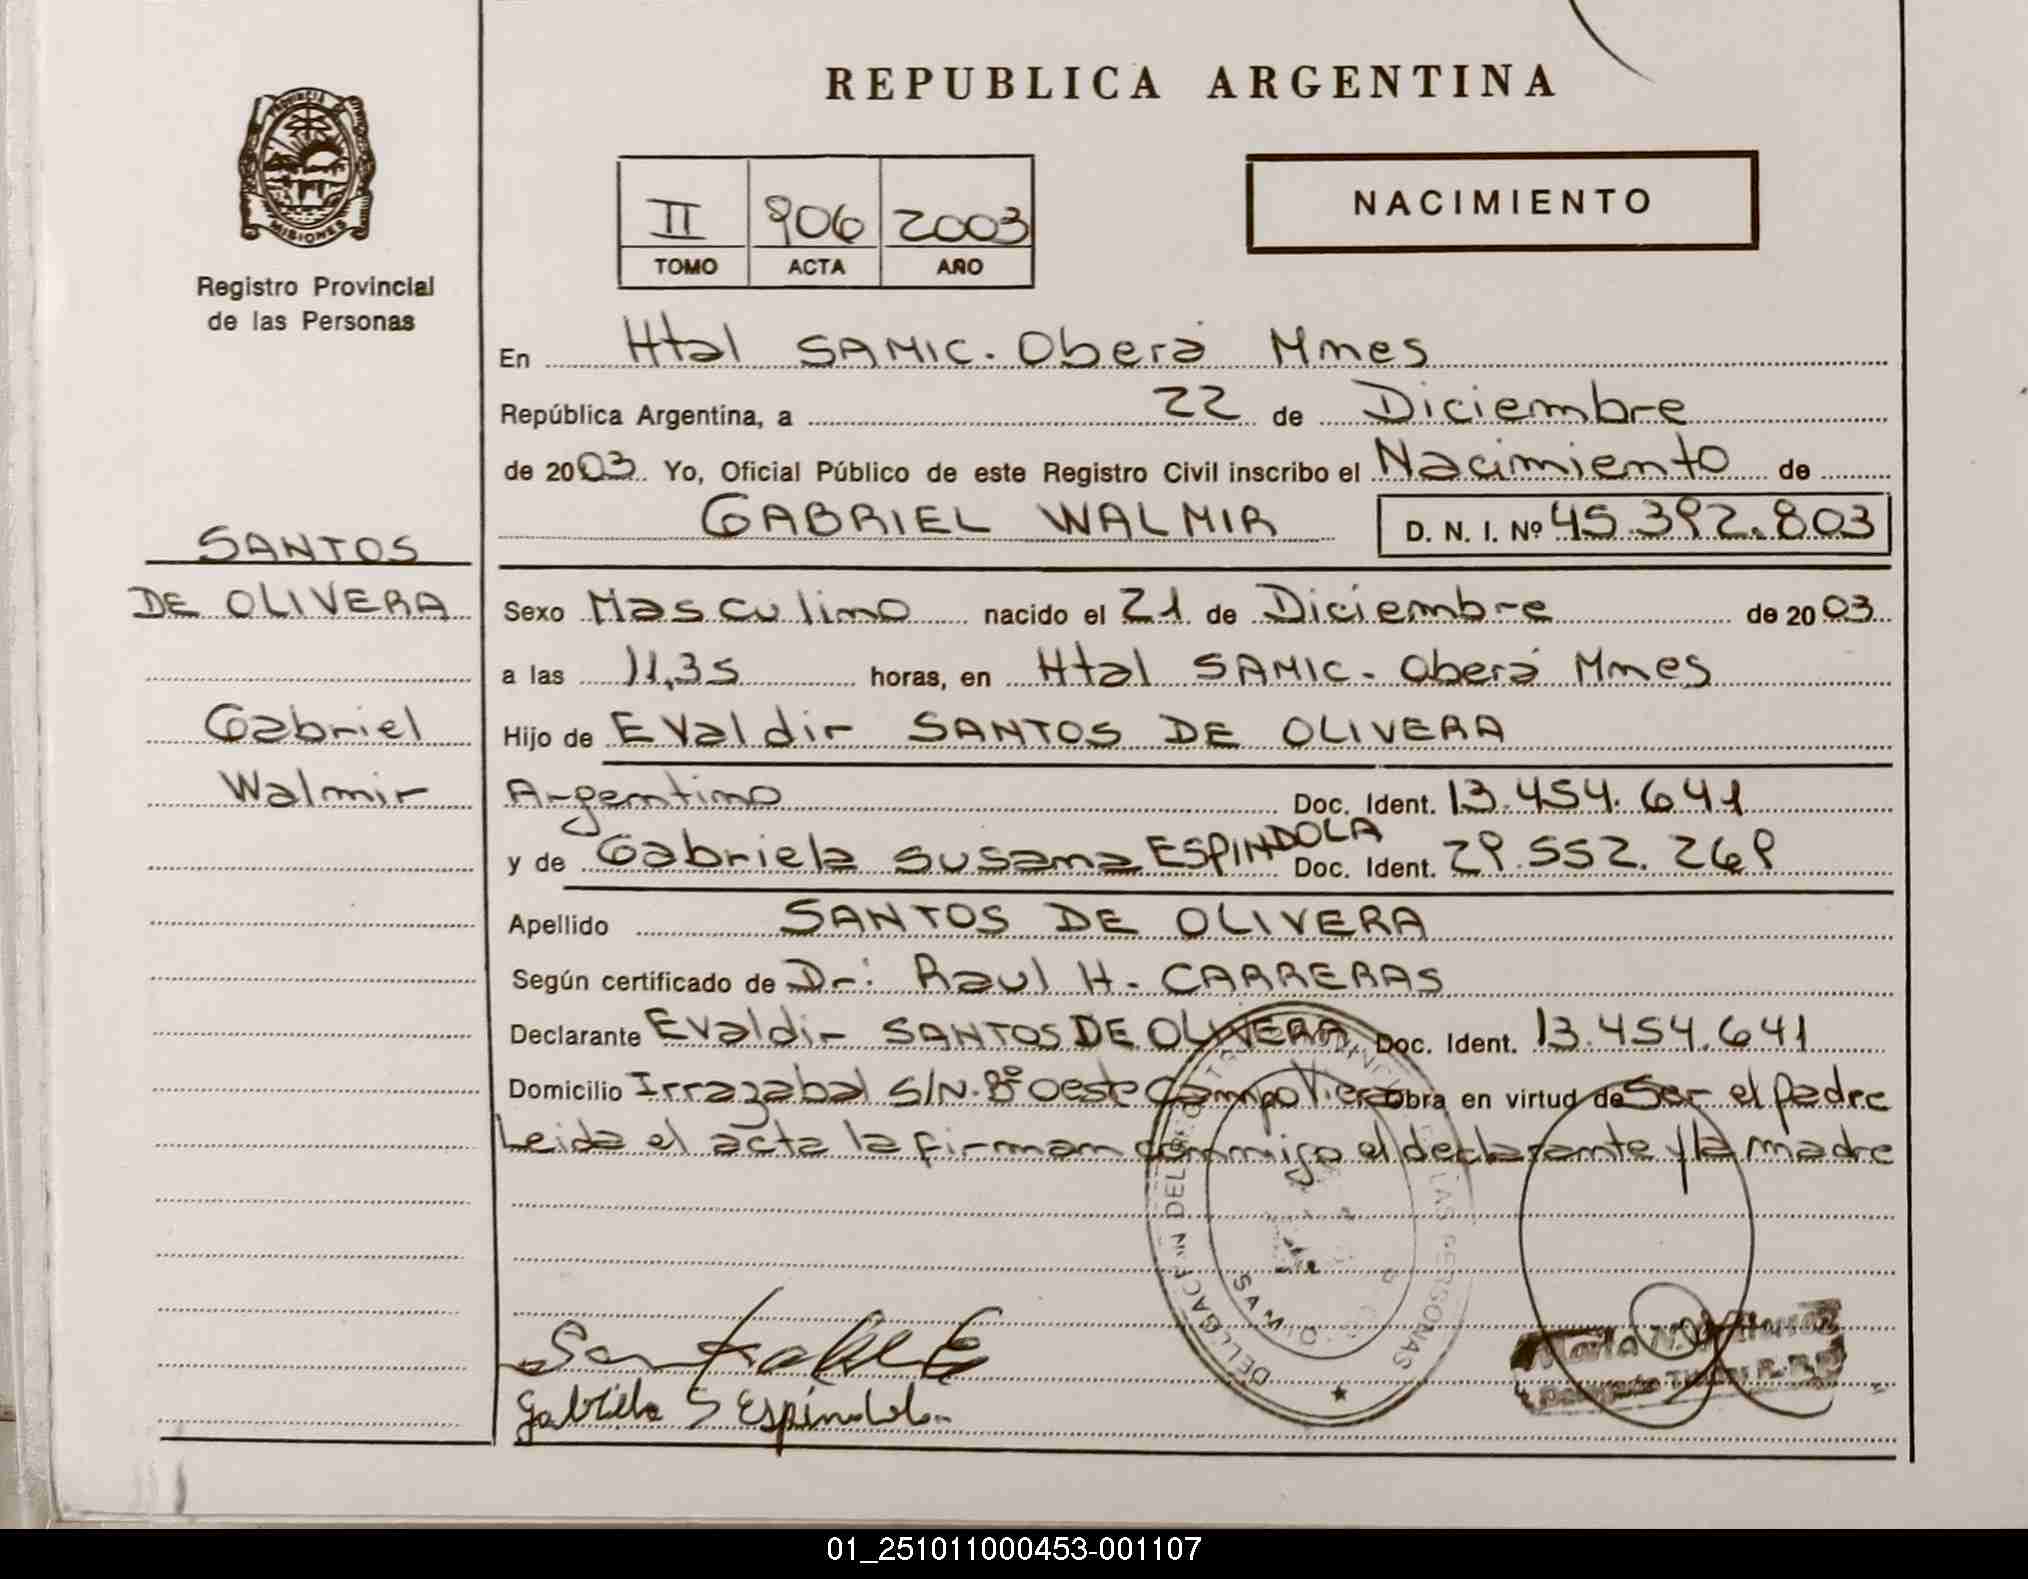 REPUBLICA ARGENTINA
PROVINCIA DE MISIONES
Registro Provincial
de las Personas
NACIMIENTO
II 906 2003
TOMO ACTA AÑO
En Htal SAMIC. Oberá Mnes
República Argentina, a 22 de Diciembre
de 2003. Yo, Oficial Público de este Registro Civil inscribo el Nacimiento de
GABRIEL WALMIR D. N. I. Nº 45.392.803
SANTOS
DE OLIVERA
Gabriel
Walmir
Sexo Masculino nacido el 21 de Diciembre de 2003
a las 11,35 horas, en Htal SAMIC. Oberá Mnes
Hijo de EValdir SANTOS DE OLIVERA
Argentino Doc. Ident. 13.454.641
y de Gabriela Susana ESPINDOLA Doc. Ident. 29.552.269
Apellido SANTOS DE OLIVERA
Según certificado de Dr: Raul H. CARRERAS
Declarante EValdir SANTOS DE OLIVERA Doc. Ident. 13.454.641
Domicilio Irrazabal S/N. Bº Oeste Campo Viera Obra en virtud de Ser el padre
Leida el acta la firman conmigo el declarante y la madre
Gabriela S Espíndola
DELEGACION DEL REGISTRO PROVINCIAL DE LAS PERSONAS
01_251011000453-001107